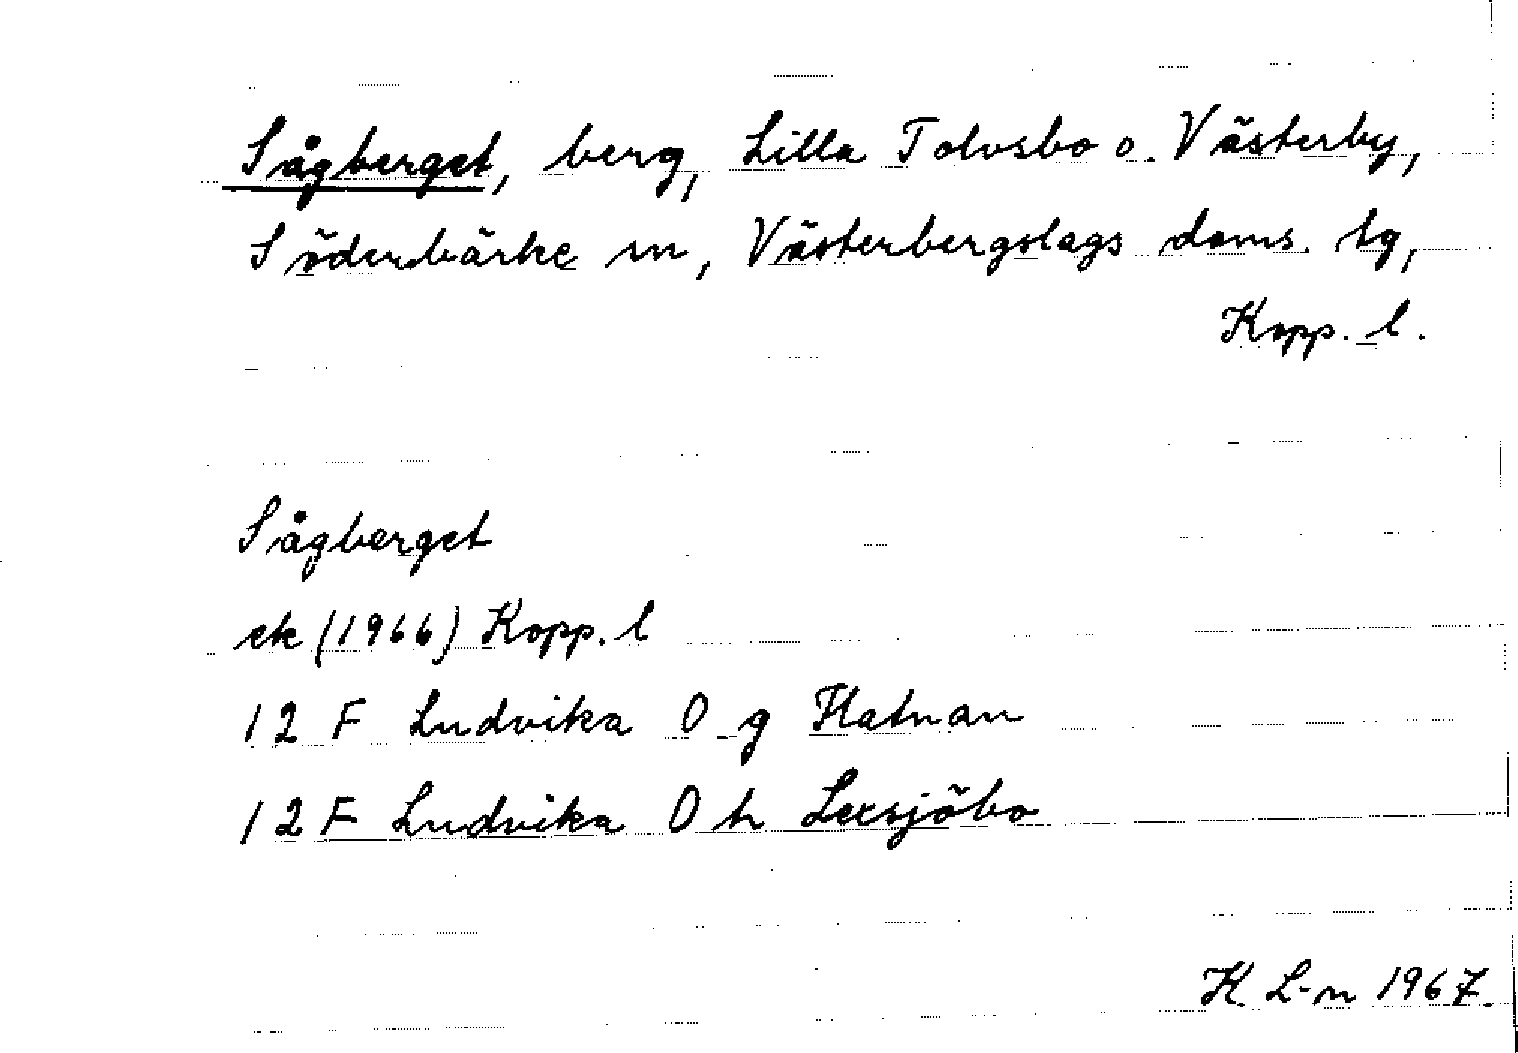 Sågberget, berg, Lilla Tolvsbo o. Västerby,
Söderbärke sn, Västerbergslags doms. tg,
Kopp. l.
Sågberget
ek (1966) Kopp. l
12 F Ludvika 0 g Flatnan
12 F Ludvika 0 h Lexsjöbo
H L-n 1967